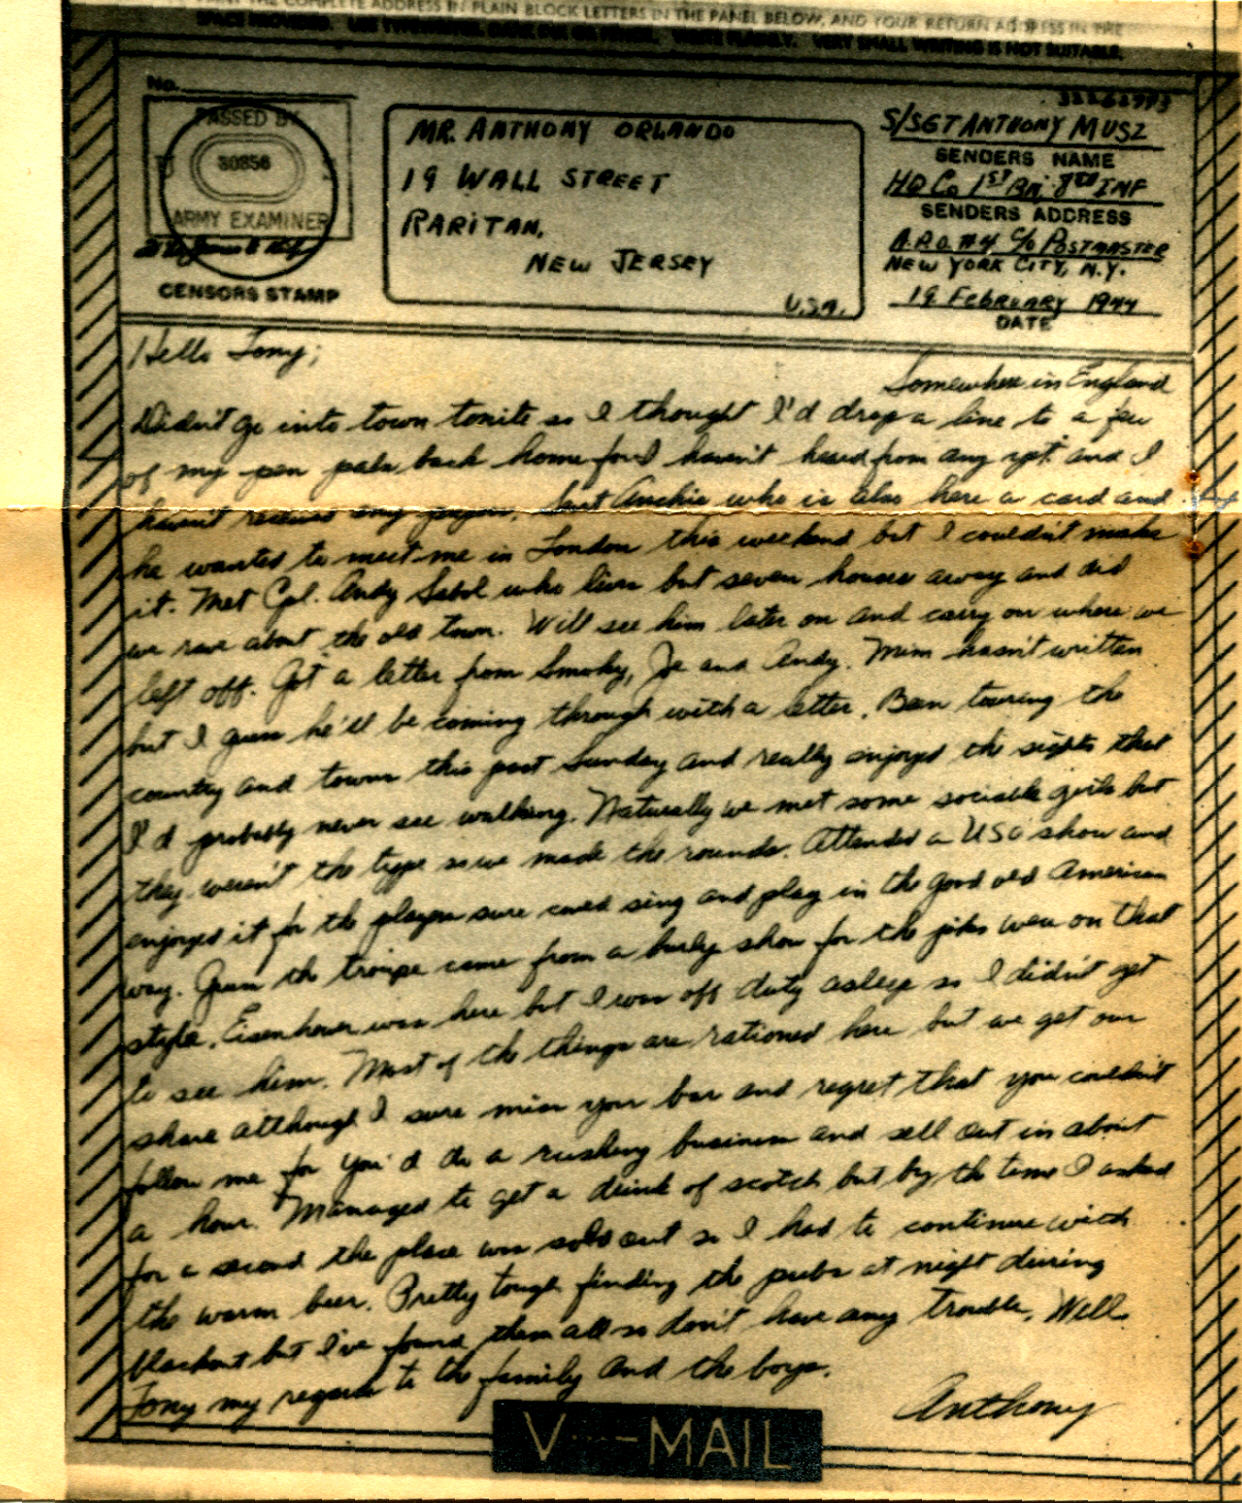 PRINT THE COMPLETE ADDRESS IN PLAIN BLOCK LETTERS IN THE PANEL BELOW, AND YOUR RETURN ADDRESS IN THE
SPACE PROVIDED. USE TYPEWRITER, DARK INK OR PENCIL. WRITE PLAINLY. VERY SMALL WRITING IS NOT SUITABLE.
No.
PASSED BY
30856
ARMY EXAMINER
CENSORS STAMP
MR. ANTHONY ORLANDO
19 WALL STREET
RARITAN,
NEW JERSEY
U.S.A.
32262773
S/SGT ANTHONY MUSZ
SENDERS NAME
HQ Co 1ST BN, 8TH INF
SENDERS ADDRESS
A.P.O. #4 C/O POSTMASTER
NEW YORK CITY, N.Y.
19 FEBRUARY 1944
DATE
Hello Tony;
Somewhere in England
Didn't go into town tonite so I thought I'd drop a line to a few
of my pen pals back home for I haven't heard from any yet and I
haven't received any papers. Sent Archie who is also here a card and
he wanted to meet me in London this weekend but I couldn't make
it. Met Cpl. Andy Sabol who lives but seven houses away and did
we rave about the old town. Will see him later on and carry on where we
left off. Got a letter from Smoky, Joe and Andy. Mim hasn't written
but I guess he'll be coming through with a letter. Been touring the
country and towns this past Sunday and really enjoyed the sights that
I'd probably never see walking. Naturally we met some sociable girls but
they weren't the type so we made the rounds. Attended a USO show and
enjoyed it for the players sure could sing and play in the good old American
way. Guess the troupe came from a burly show for the jokes were on that
style. Eisenhower was here but I was off duty asleep so I didn't get
to see him. Most of the things are rationed here but we get our
share although I sure miss your bar and regret that you couldn't
follow me for you'd do a rushing business and sell out in about
a hour. Managed to get a drink of scotch but by the time I asked
for a second the place was sold out so I had to continue with
the warm beer. Pretty tough finding the pubs at night during
blackout but I've found them all so don't have any trouble. Well
Tony my regards to the family and the boys.
Anthony
V···—MAIL